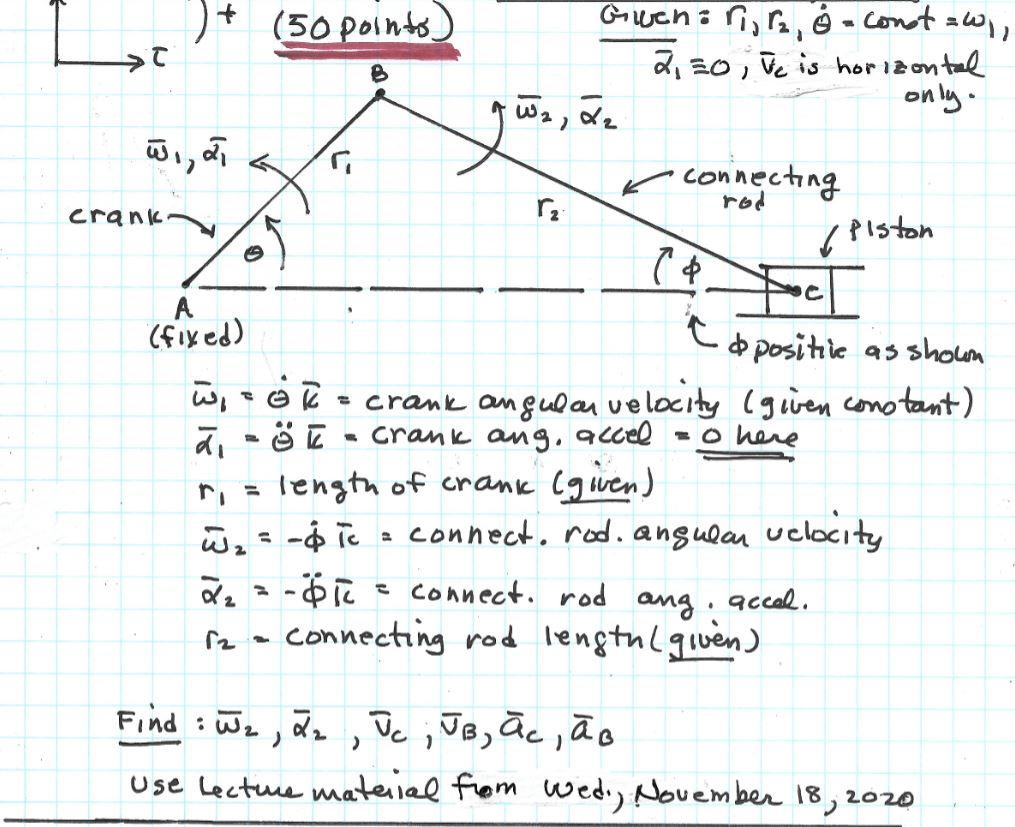 )+ (50 points)
Given: r₁, r₂, θ̇ = const = ω₁,
ᾱ₁ ≡ 0, v̄c is horizontal
only.
ī
B
ω̄₁, ᾱ₁
r₁
ω̄₂, ᾱ₂
connecting
rod
crank
r₂
piston
θ
ϕ
C
A
(fixed)
ϕ positive as shown
ω̄₁ = θ̇ k̄ = crank angular velocity (given constant)
ᾱ₁ = θ̈ k̄ = crank ang. accel = 0 here
r₁ = length of crank (given)
ω̄₂ = -ϕ̇ k̄ = connect. rod. angular velocity
ᾱ₂ = -ϕ̈ k̄ = connect. rod ang. accel.
r₂ = connecting rod length (given)
Find: ω̄₂, ᾱ₂, v̄c, v̄B, āc, āB
Use Lecture material from Wed., November 18, 2020